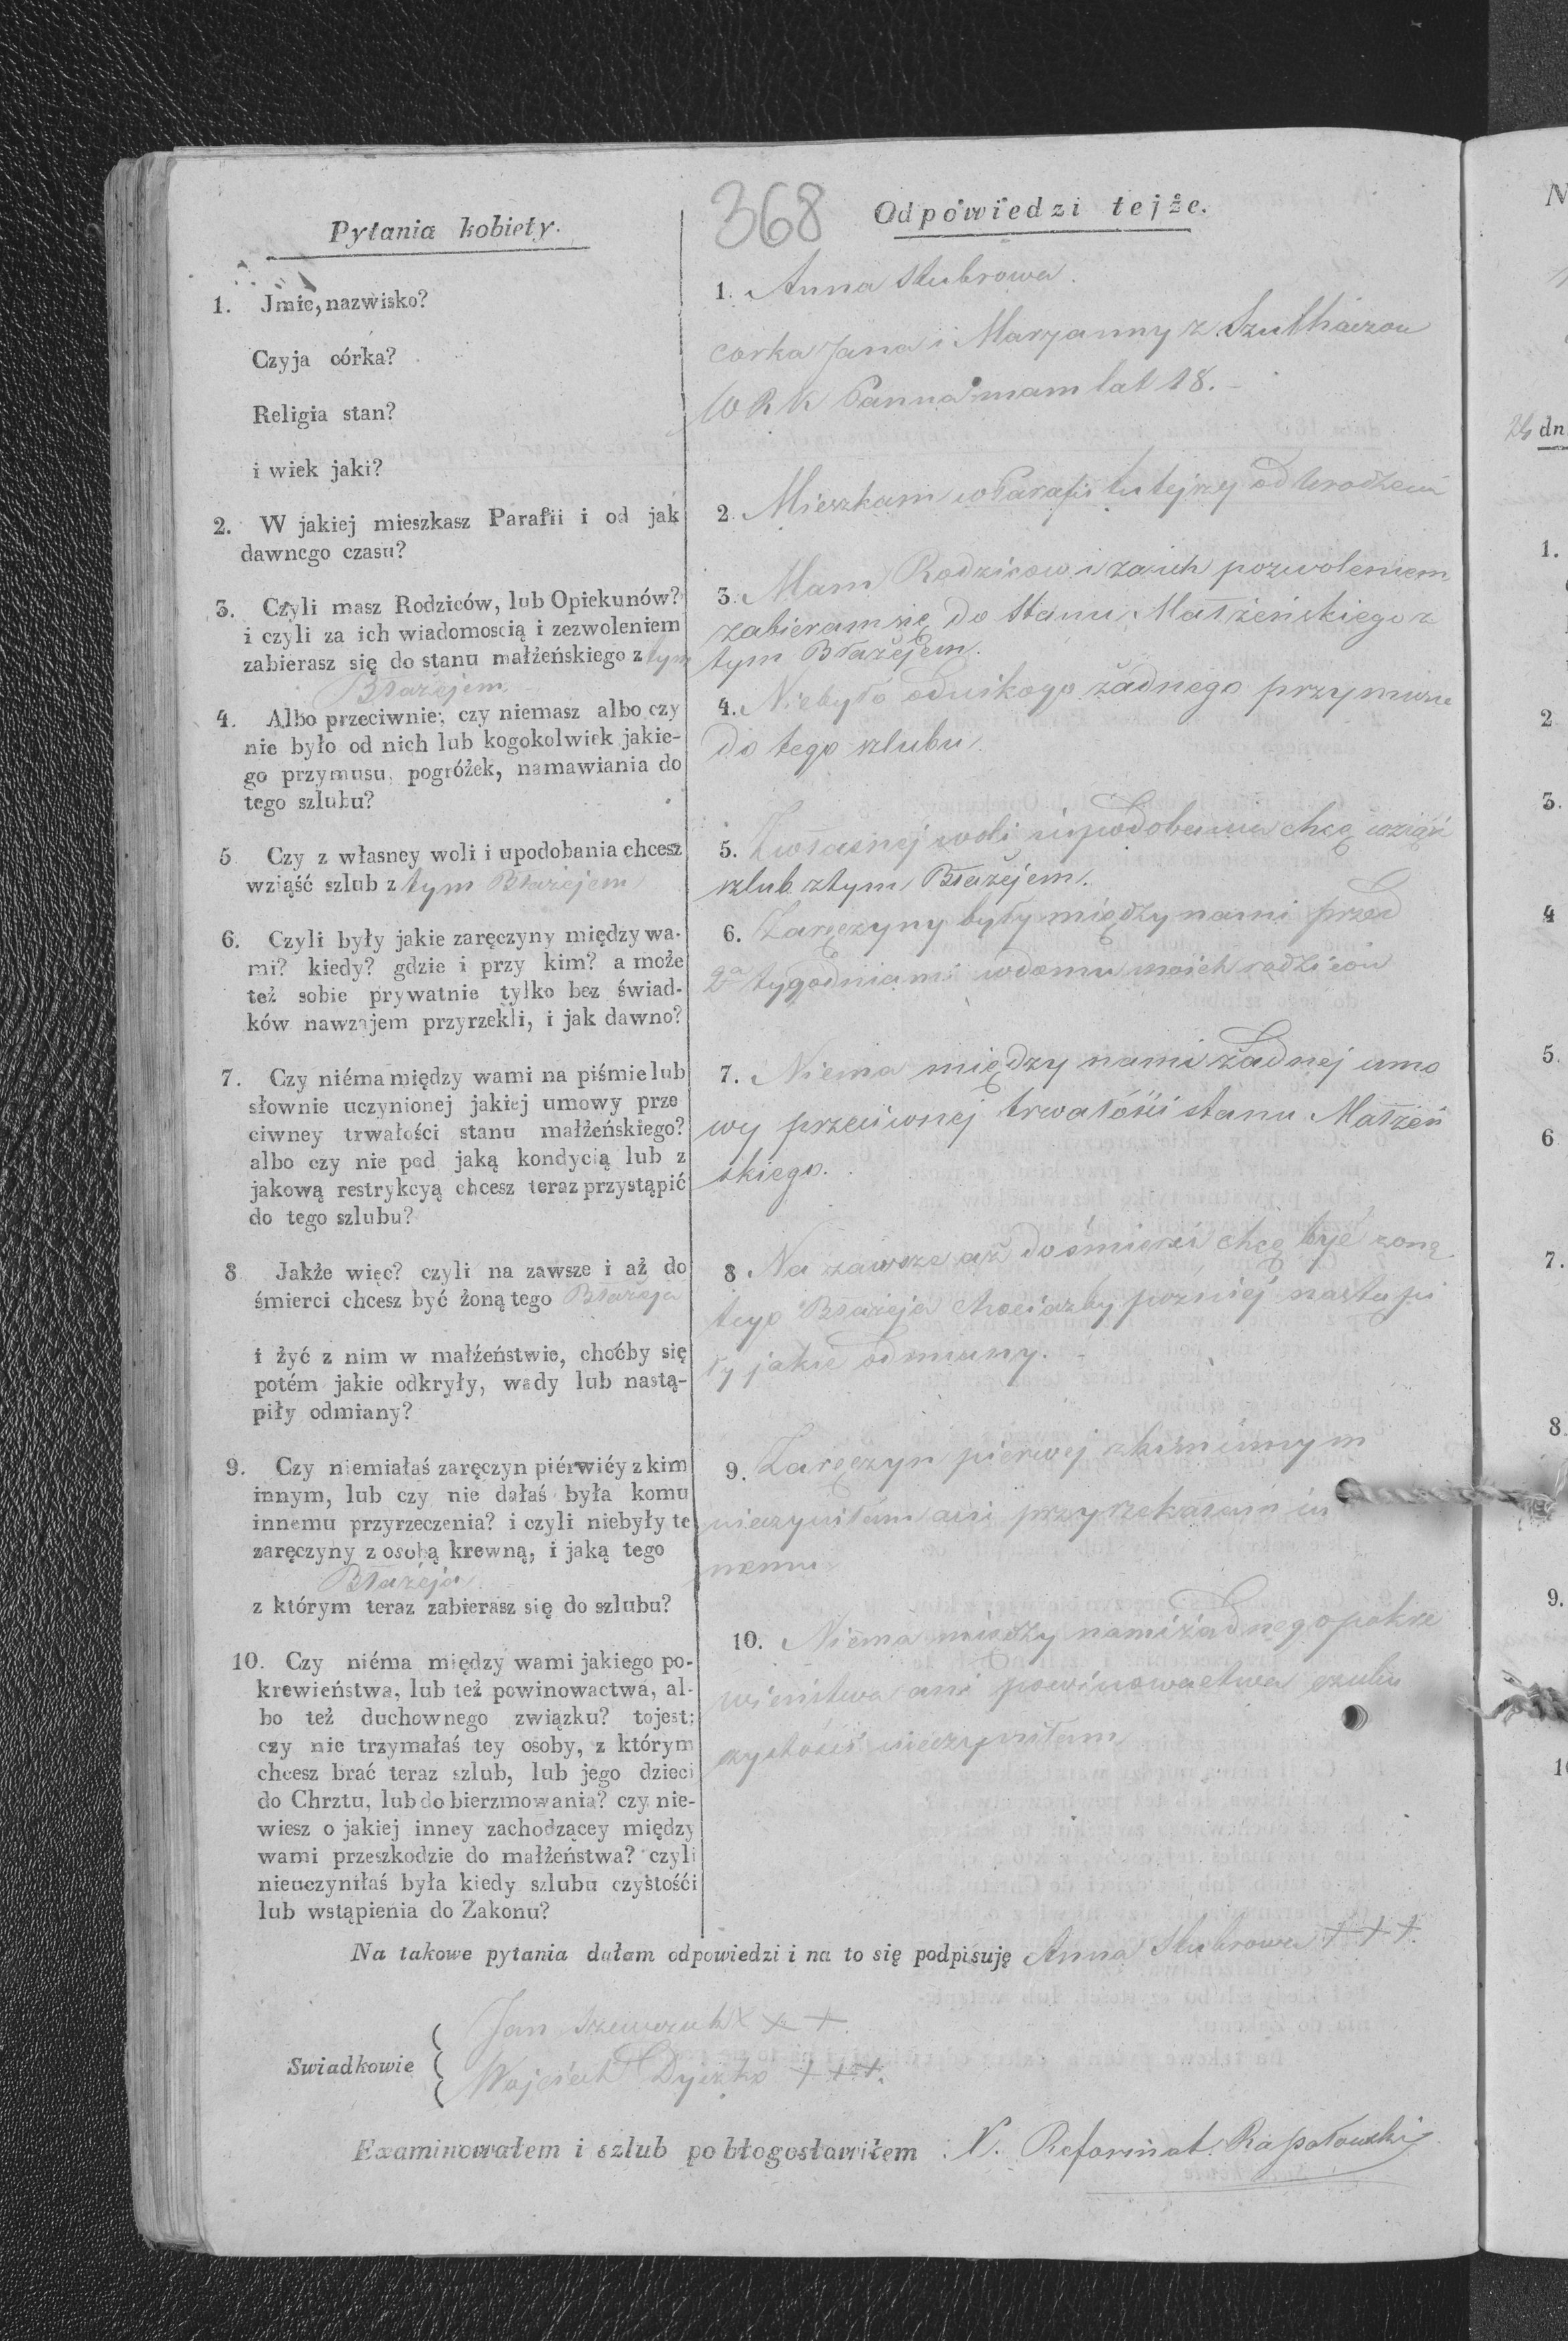 368
Pytania kobiety.
1. Jmie, nazwisko?
Czyja córka?
Religia stan?
i wiek jaki?
2. W jakiej mieszkasz Parafii i od jak
dawnego czasu?
3. Czyli masz Rodziców, lub Opiekunów?
i czyli za ich wiadomoscią i zezwoleniem
zabierasz się do stanu małżeńskiego z tym
Błażejem
4. Albo przeciwnie; czy niemasz albo czy
nie było od nich lub kogokolwiek jakie-
go przymusu, pogróżek, namawiania do
tego szlubu?
5 Czy z własney woli i upodobania chcesz
wziąść szlub z tym Błażejem
6. Czyli były jakie zaręczyny między wa-
mi? kiedy? gdzie i przy kim? a może
też sobie prywatnie tylko bez świad-
ków nawzajem przyrzekli, i jak dawno?
7. Czy niéma między wami na piśmie lub
słownie uczynionej jakiej umowy prze
ciwney trwałości stanu małżeńskiego?
albo czy nie pod jaką kondycią lub z
jakową restrykcyą chcesz teraz przystąpić
do tego szlubu?
8 Jakże więc? czyli na zawsze i aż do
śmierci chcesz być żoną tego Błażeja
i żyć z nim w małżeństwie, choćby się
potém jakie odkryły, wady lub nastą-
piły odmiany?
9. Czy niemiałaś zaręczyn piérwiéy z kim
innym, lub czy nie dałaś była komu
innemu przyrzeczenia? i czyli niebyły te
zaręczyny z osobą krewną, i jaką tego
Błażeja
z którym teraz zabierasz się do szlubu?
10. Czy niéma między wami jakiego po-
krewieństwa, lub też powinowactwa, al-
bo też duchownego związku? tojest:
czy nie trzymałaś tey osoby, z którym
chcesz brać teraz szlub, lub jego dzieci
do Chrztu, lub do bierzmowania? czy nie-
wiesz o jakiej inney zachodzącey między
wami przeszkodzie do małżeństwa? czyli
nieuczyniłaś była kiedy szlubu czystośći
lub wstąpienia do Zakonu?
Odpowiedzi tejże.
1. Anna Stubrowa
corka Jana i Maryanny z
W R K Panna mam lat 18.
2. Mieszkam w Parafii tutejszy od Urodzenia
3. Mam Rodzicow i za ich pozwoleniem
zabieram się do stanu Małżeńskiego z
tym Błażejem.
4. Niebyło od nikogo żadnego przymusu
do tego szlubu.
5. Z własnej woli i upodobania chcę wziąść
szlub z tym Błażejem.
6. Zaręczyny były między nami przed
2a tygodniami w domu moich rodziców
7. Niema między nami żadnej umo
wy przeciwnej trwałości stanu Małżeń
skiego.
8 Na zawsze aż do śmierci chcę być żoną
tego Błażeja chociażby pozniej nastąpi
ły jakie odmiany.
9. Zaręczyn pierwej z kim innym
nieczyniłam ani przyrzekałam in
nemu
10. Niema między nami żadnego pokre
wieństwa ani powinowactwa szlubu
czystości nieczyniłam
Na takowe pytania dałam odpowiedzi i na to się podpisuję Anna Stubrowa +++.
Swiadkowie
Jan Szewczuk x x +
Wojciech Dyczko +++.
Examinowałem i szlub pobłogosławiłem : X. Reformat. Rapałowski
N
24 dn
1.
2
3.
4
5.
6
7.
8.
9.
10